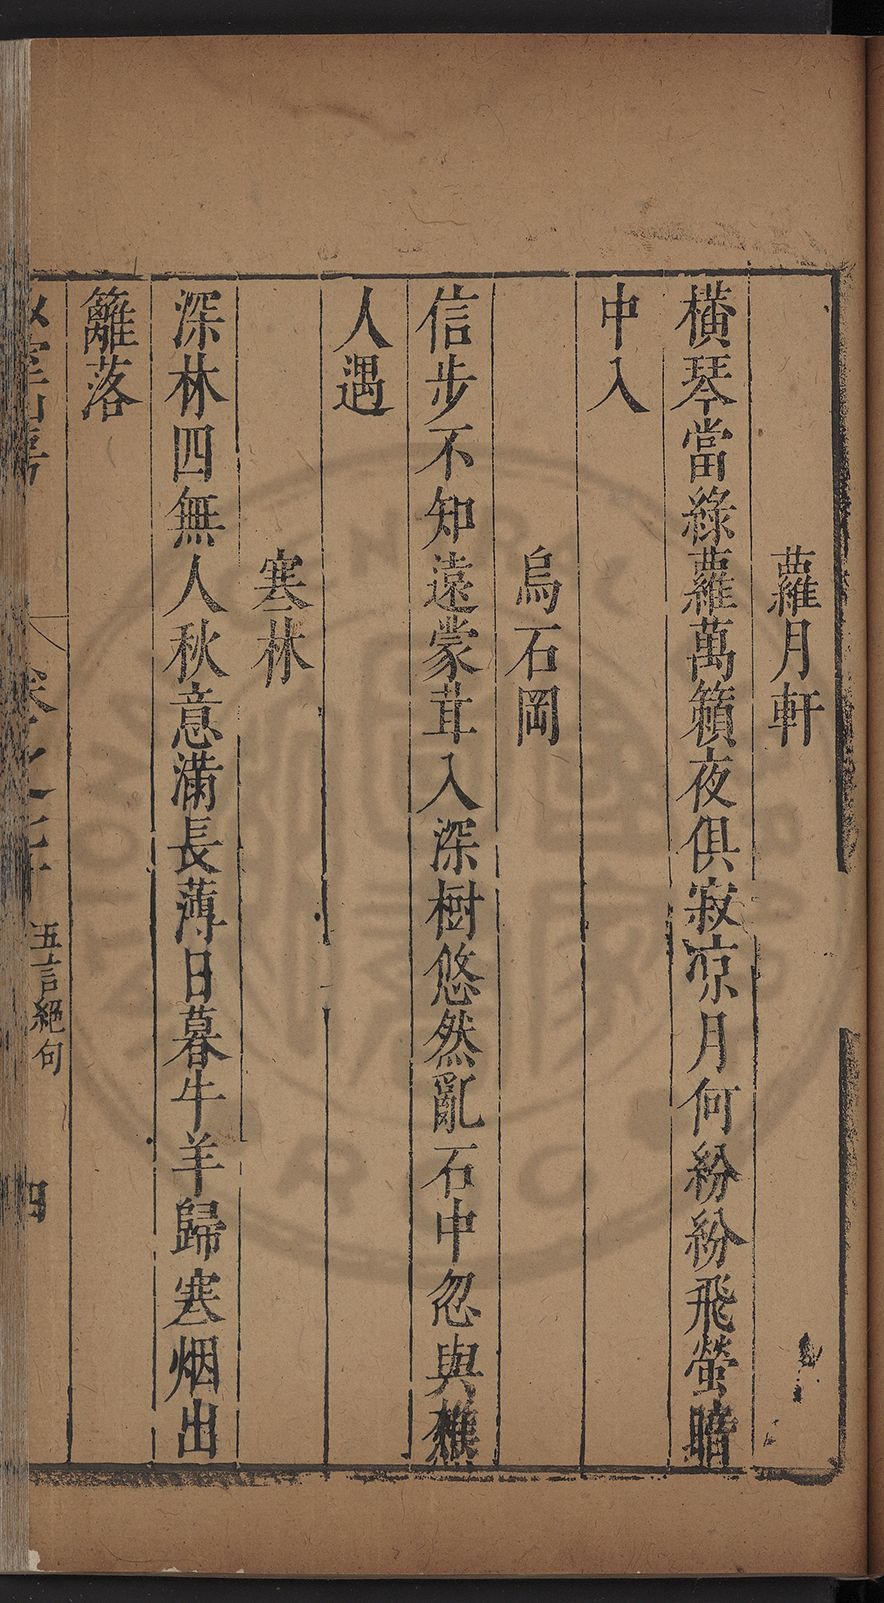 蘿月軒
橫琴當綠蘿萬籟夜俱寂凉月何紛紛飛螢暗
中入
烏石岡
信步不知遠蒙茸入深樹悠然亂石中忽與樵
人遇
寒林
深林四無人秋意滿長薄日暮牛羊歸寒烟出
籬落
卷之七
五言絕句
四